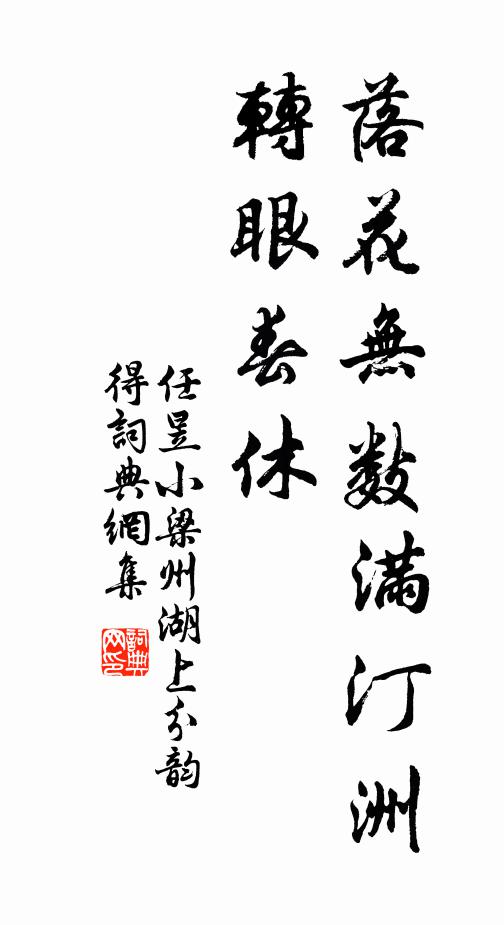 落花無數滿汀洲
轉眼春休
任昱小梁州湖上分韵
得詞典網集
詞典
网印